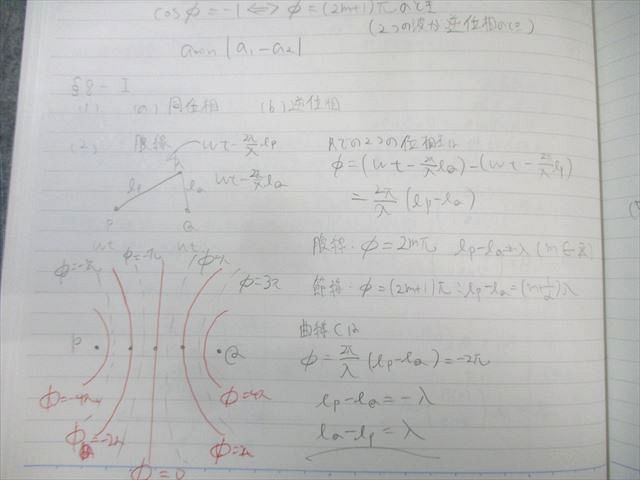 cosφ = -1 ⇔ φ = (2m+1)π のとき
(2つの波が逆位相のとき)
amin |a₁-a₂|
§8-I
(1) (a) 同位相 (b) 逆位相
(2) 腹線
ωt - 2π/λ lp
ωt - 2π/λ lQ
lp lQ
P Q
ωt ωt
Rでの2つの位相差は
φ = (ωt - 2π/λ lQ) - (ωt - 2π/λ lp)
= 2π/λ (lp - lQ)
腹線: φ = 2mπ lp-lQ=mλ (m∈Z)
節線: φ = (2m+1)π lp-lQ = (m+1/2)λ
曲線Cは
φ = 2π/λ (lp-lQ) = -2π
lp-lQ = -λ
lQ-lp = λ
φ=-3π φ=-π φ=π φ=3π
P Q
φ=-4π φ=4π
φ=-2π φ=2π
φ=0